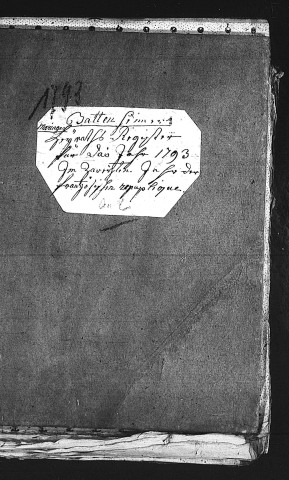 1793
Battenheimer
Mariages
Heyraths Register
für das Jahr 1793
Im zweyten Jahr der
französischen republique